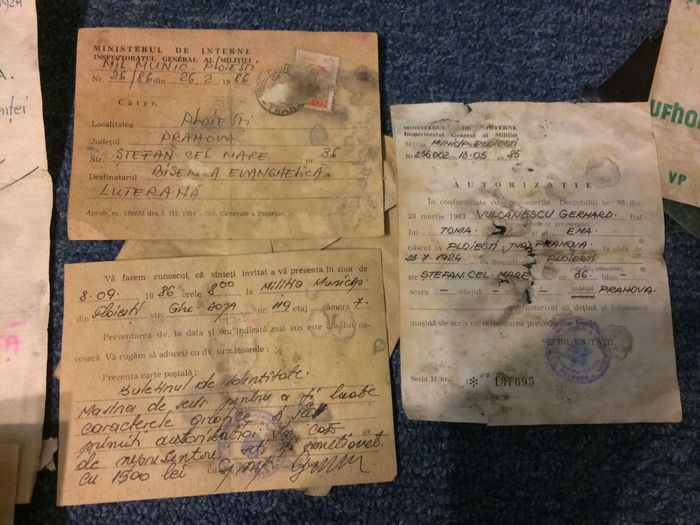 MINISTERUL DE INTERNE
INSPECTORATUL GENERAL AL MILIȚIEI
MIL. MUNIC. PLOIEȘTI
Nr. 26/86 din 26.2 1986
Către,
Localitatea PLOIEȘTI
Județul PRAHOVA
Str. ȘTEFAN CEL MARE nr. 36
Destinatarul BISERICA EVANGHELICĂ
LUTERANĂ
Aprob. nr. 120631 din 5 III. 1954 Dir. Generale a Poștelor.
Vă facem cunoscut că sînteți invitat a vă prezenta în ziua de
8.09. 1986 orele 800 la Miliția Municip.
din Ploiești str. Ghe. Doja nr. 119 etaj camera 7.
Prezentarea dv. la data și ora indicată mai sus este absolut ne-
cesară. Vă rugăm să aduceți cu dv. următoarele:
Prezenta carte poștală;
Buletinul de identitate.
Mașina de scris pentru a-i lua
caracterele grafice
primit autorizația. În caz
de neprezentare
cu 1500 lei
MINISTERUL DE INTERNE
Inspectoratul General al Miliției
Miliția MUNICIP. PLOIEȘTI
Nr. 236.002 18.05 1985
AUTORIZAȚIE
În conformitate cu prevederile Decretului nr. 98 din
28 martie 1983 VULCĂNESCU GERHARD fiul
lui TOMA și EMA
născut în PLOIEȘTI, JUD. PRAHOVA la data de
1924 cu domiciliul PLOIEȘTI
(orașul, comuna)
str. ȘTEFAN CEL MARE nr. 36. bloc —
scara — etajul — județul PRAHOVA
autorizat să dețină și folosească
mașină de scris cu respectarea prevederilor legale.
ȘEFUL UNITĂȚII,
Seria M nr. 137695
VP